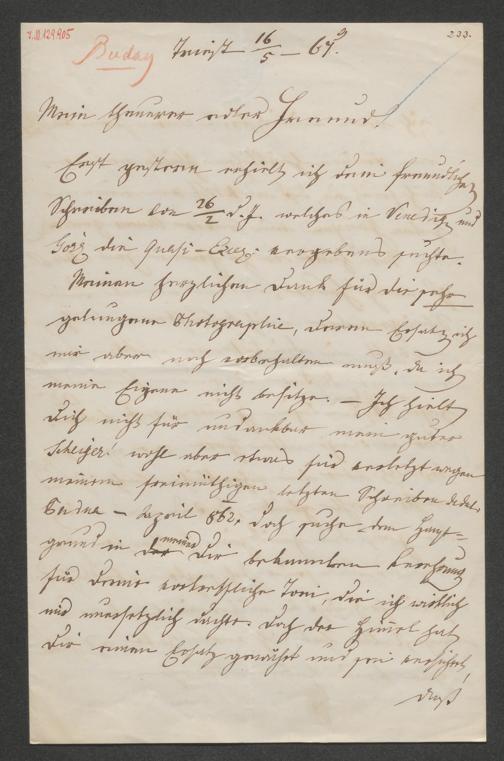 I.N. 129.905
233.
Buday
Triest 16/5 – 67.
Mein theurer edler Freund!
Erst gestern erhielt ich dein freundliches
Schreiben von 26/2 d. J. welches in Venedig und
Görz die quasi-Exz: vergebens suchte.
Meinen herzlichen Dank für die sehr
gelungene Photographie, deren Ersatz ich
mir aber noch vorbehalten muß, da ich
meine Eigene nicht besitze. – Ich hielt
Dich nicht für undankbar mein guter
Scheiger! wohl aber etwas für verletzt wegen
meinem freimüthigen letzten Schreiben de dato
– April 862, doch suche den Haupt-
grund in der meine Dir bekannten Verehrung
für Deine vortreffliche Toni, die ich wirklich
und unersetzlich achte. Doch der Himmel hat
Dir einen Ersatz gewährt und sei versichert,
daß